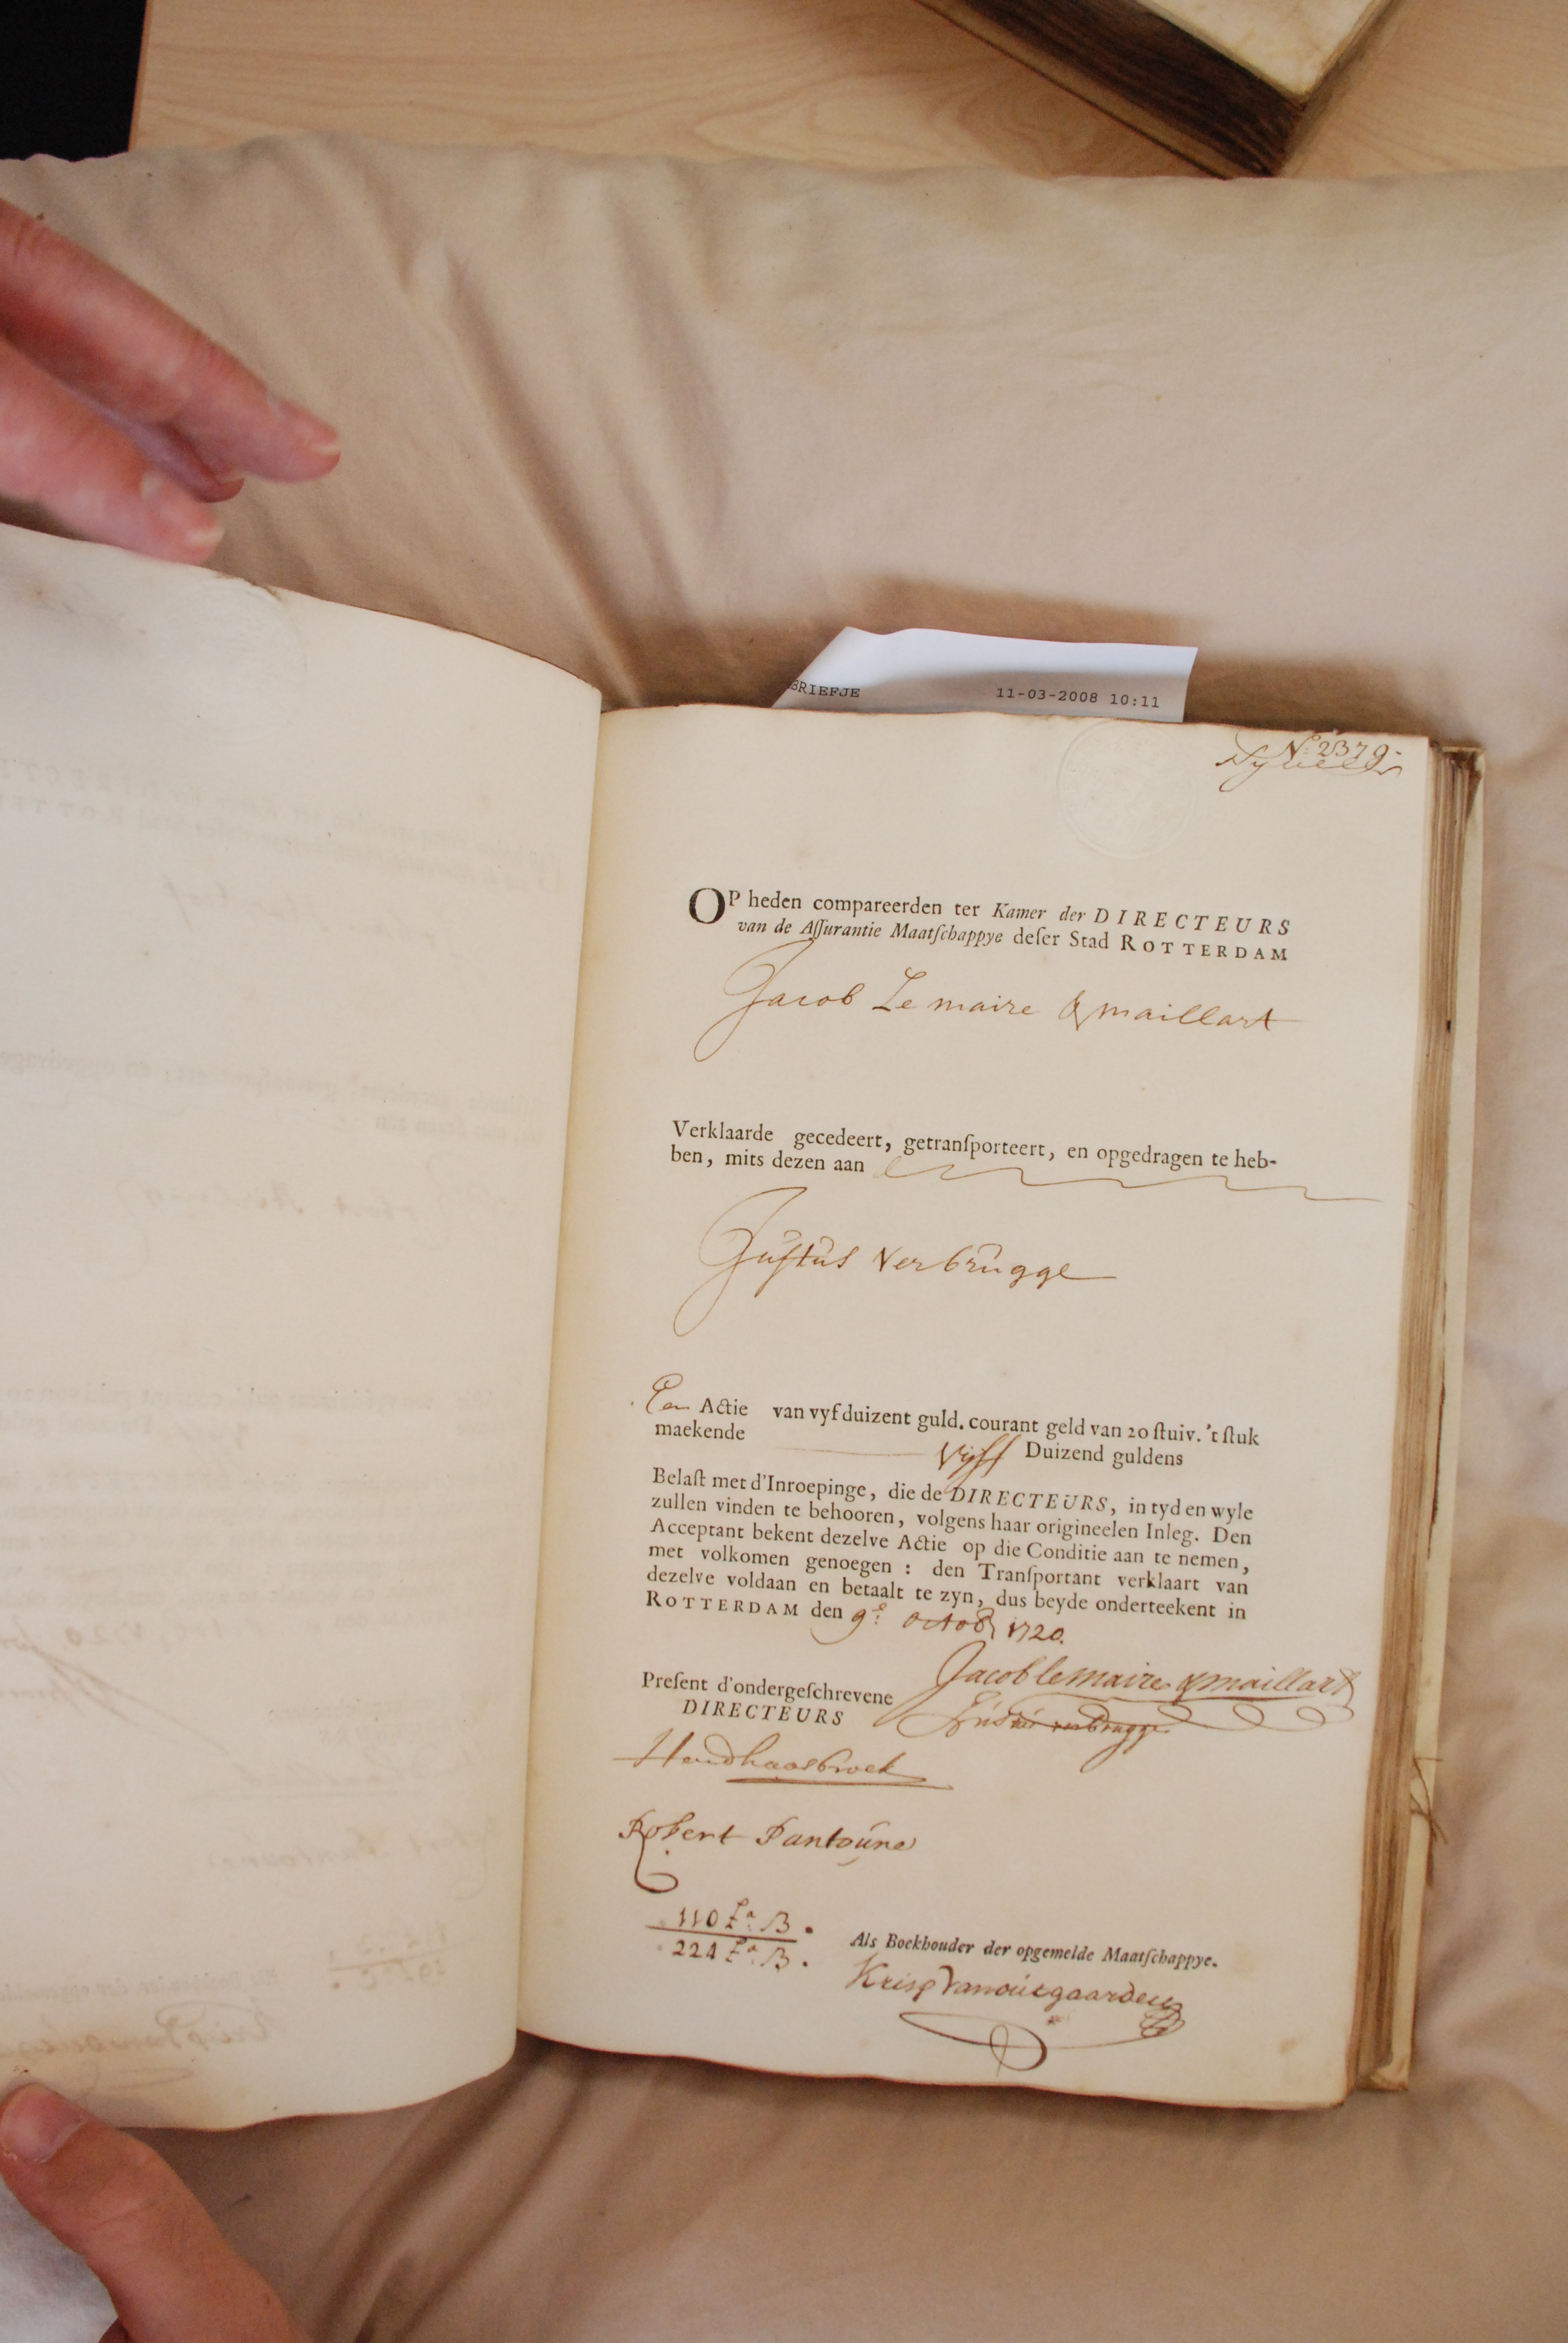 BRIEFJE 11-03-2008 10:11
No. 2379.
OP heden compareerden ter Kamer der DIRECTEURS
van de Aſſurantie Maatſchappye deſer Stad ROTTERDAM
Jacob Le maire & maillart
Verklaarde gecedeert, getranſporteert, en opgedragen te heb-
ben, mits dezen aan
Juſtus Verbrugge
Een Actie van vyf duizent guld. courant geld van 20 ſtuiv. 't ſtuk
maekende Vyff Duizend guldens
Belaſt met d'Inroepinge, die de DIRECTEURS, in tyd en wyle
zullen vinden te behooren, volgens haar origineelen Inleg. Den
Acceptant bekent dezelve Actie op die Conditie aan te nemen,
met volkomen genoegen : den Tranſportant verklaart van
dezelve voldaan en betaalt te zyn, dus beyde onderteekent in
ROTTERDAM den 9e. octob 1720.
Jacob lemaire & maillart
Preſent d'ondergeſchrevene
verbrugge
DIRECTEURS
Hend haasbroek
Robert Pantoune
110 La. B.
224 La. B.
Als Boekhouder der opgemelde Maatſchappye.
Krisp Vanoutgaarden